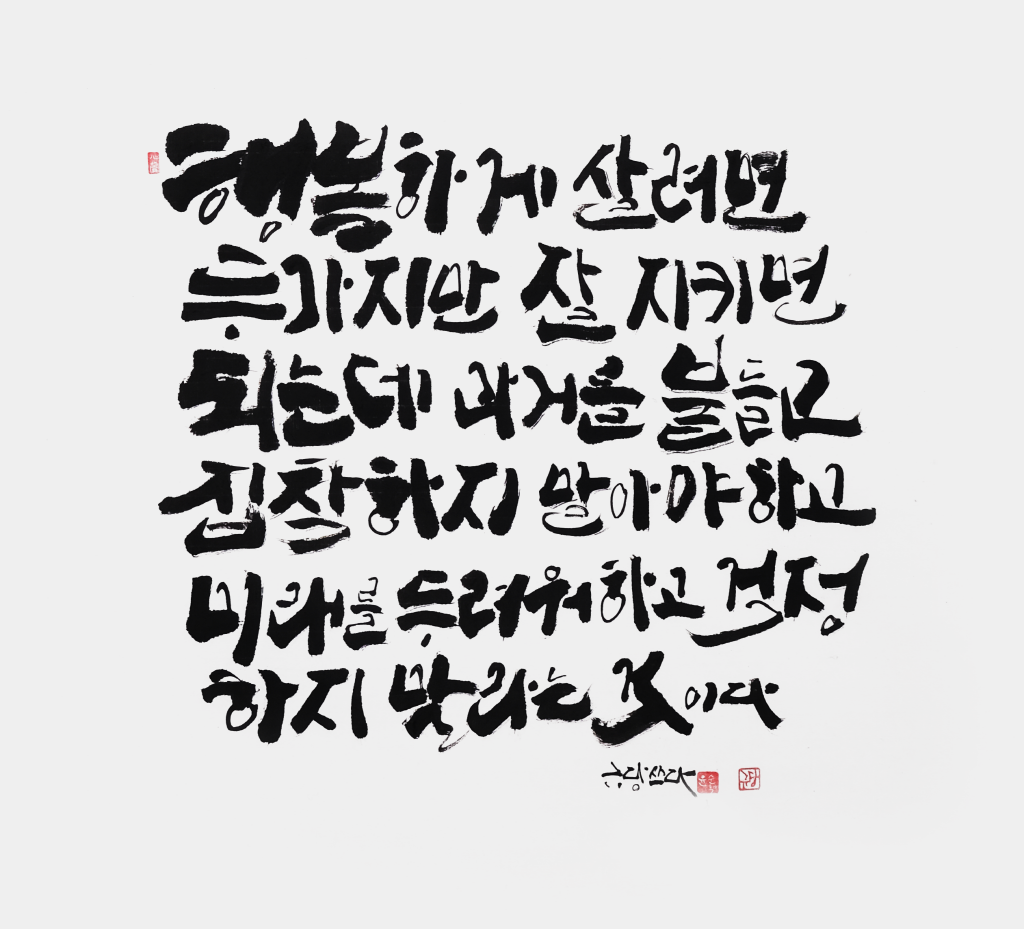 행복하게 살려면
두가지만 잘 지키면
되는데 과거를 붙들고
집착하지 말아야하고
미래를 두려워하고 결정
하지 말라는 것이다
쓰다